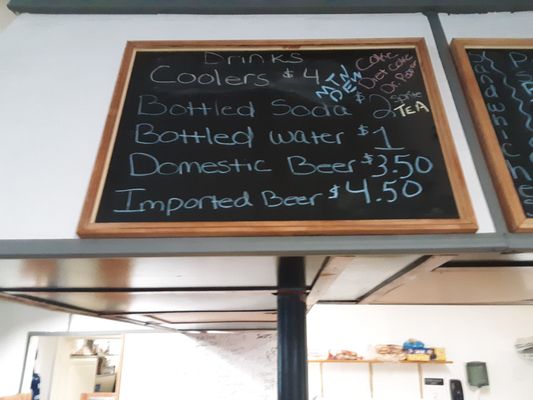 Drinks
Coolers $4
MTN DEW
Coke
Diet Coke
Dr. Peper
Sprite
TEA
Bottled Soda $2
Bottled water $1
Domestic Beer $3.50
Imported Beer $4.50